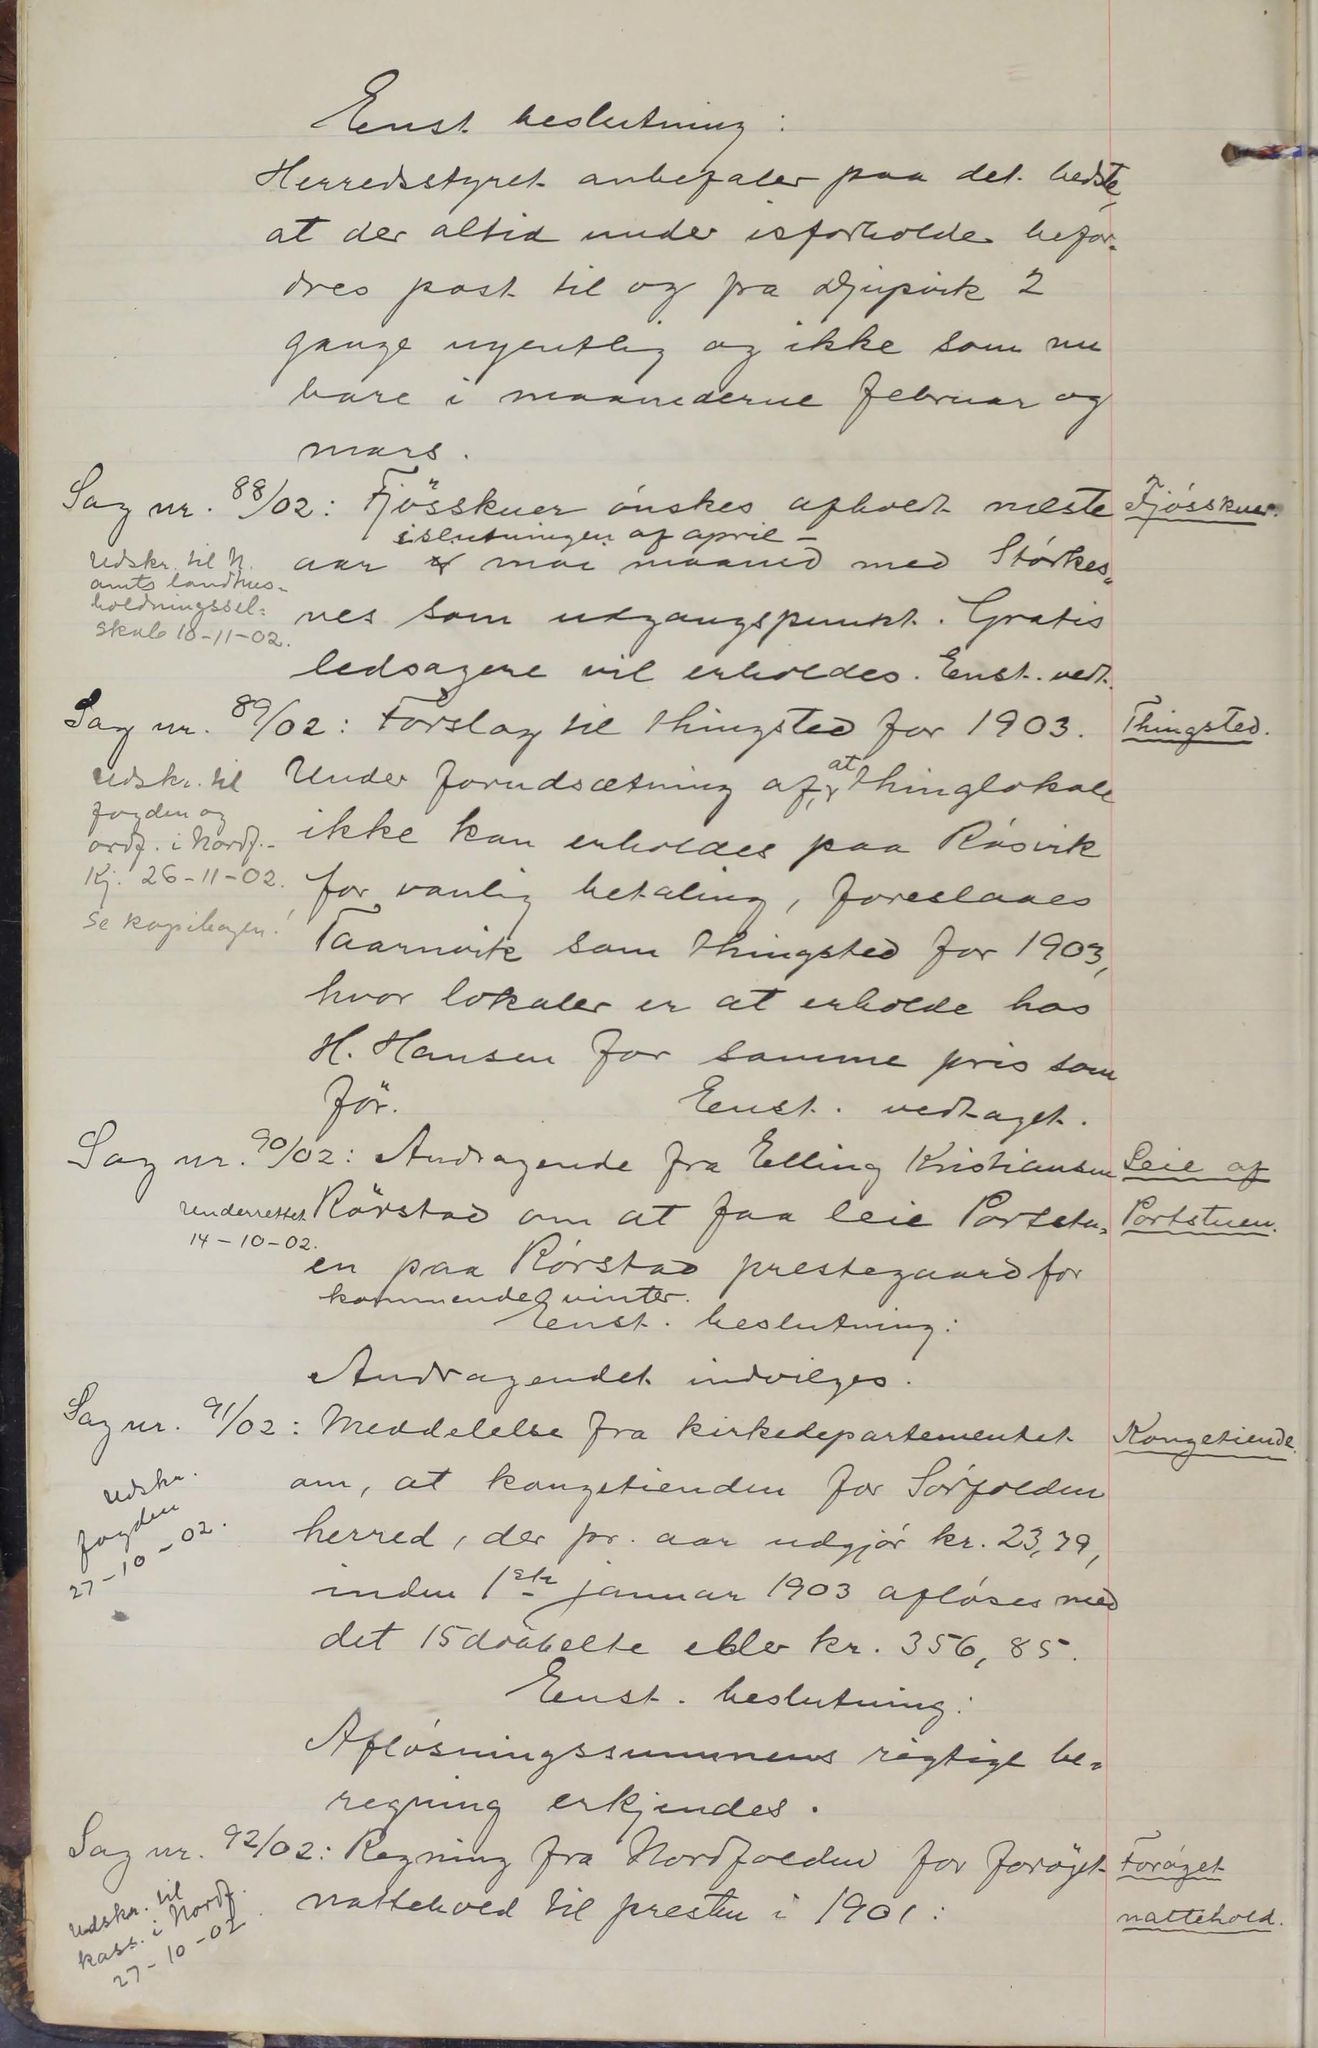 Enst. beslutning:
Herredsstyret anbefaler paa det bedste,
at der altid under isforholde befor-
dres post til og fra Djupvik 2
gange ugentlig og ikke som nu
bare i maanederne februar og
mars.
Sag nr. 88/02: Fjösskuer ónskes afholdt næste
Fjósskuer.
i slutningen af april -
aar mai maaned med Stórkes-
nes som udgangspunkt. Gratis
ledsagere vil erholdes. Enst. vedt.
Udskr. til N.
amts landhus-
holdningssel-
skab 10-11-02.
Sag nr. 89/02: Forslag til thingsted for 1903.
Thingsted.
Under forudsætning af, at thinglokale
ikke kan erholdes paa Rósvik
for vanlig betaling, foreslaaes
Taarnvik som thingsted for 1903,
hvor lokaler er at erholde hos
H. Hansen for samme pris som
för. Enst. vedtaget.
Udskr. til
fogden og
ordf. i Nordf.-
Kj. 26-11-02.
Se kopibogen!
Sag nr. 90/02: Andragende fra Elling Kristiansen
Leie af
Rörstad om at faa leie Portstu-
Portstuen.
en paa Rórstad prestegaard for
kommende vinter.
Enst. beslutning:
Andragendet indvilges.
Underrettet
14-10-02.
Sag nr. 91/02: Meddelelse fra kirkedepartementet
Kongetiende.
om, at kongetienden for Sórfolden
herred, der pr. aar udgjór kr. 23,79,
inden 1ste januar 1903 aflóses med
det 15dobbelte eller kr. 356,85.
Enst. beslutning:
Aflósningssummens rigtige be-
regning erkjendes.
Udskr.
fogden
27-10-02.
Sag nr. 92/02: Regning fra Nordfolden for foróget
Foróget
nattehold til presten i 1901:
nattehold.
Udskr. til
kass. i Nordf.
27-10-02